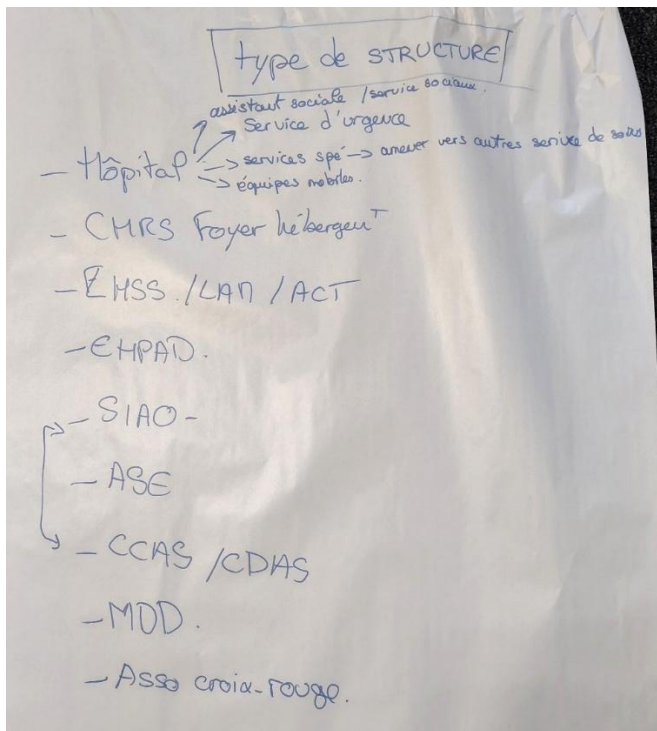 type de STRUCTURE
assistant sociale / service sociaux.
Service d'urgence
- Hôpital
→ services spé → amener vers autres service de soins
→ équipes mobiles.
- CHRS Foyer hébergenT
- LHSS / LAM / ACT
- EHPAD.
- SIAO -
- ASE
- CCAS / CDAS
- MDD.
- Asso croix-rouge.